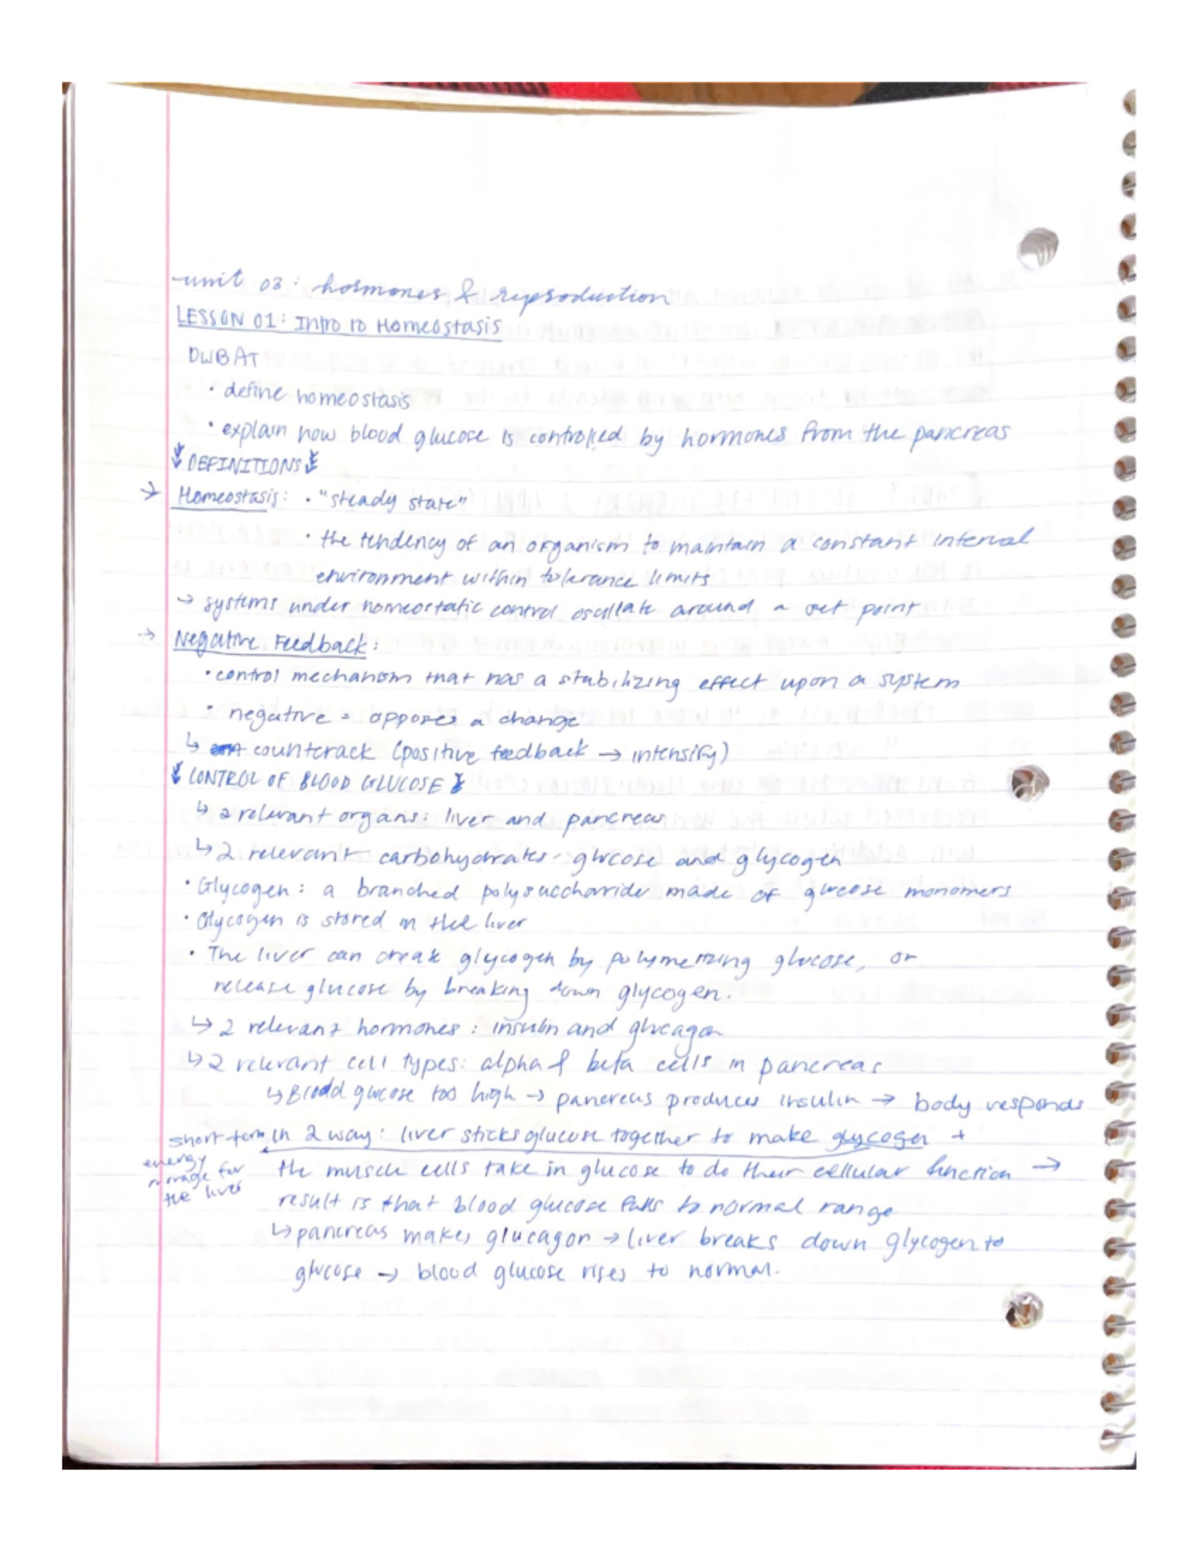 unit 03: hormones & reproduction
LESSON 01: Intro to Homeostasis
DWBAT
• define homeostasis
• explain how blood glucose is controlled by hormones from the pancreas
DEFINITIONS
→ Homeostasis: • "steady state"
• the tendency of an organism to maintain a constant interval
environment within tolerance limits
→ systems under homeostatic control oscillate around a set point
→ Negative Feedback:
• control mechanism that has a stabilizing effect upon a system
• negative = opposes a change
↳ counterack (positive feedback → intensify)
CONTROL OF BLOOD GLUCOSE
↳ 2 relevant organs: liver and pancreas
↳ 2 relevant carbohydrates: glucose and glycogen
• Glycogen: a branched polysaccharide made of glucose monomers
• Glycogen is stored in the liver
• The liver can create glycogen by polymerizing glucose, or
release glucose by breaking down glycogen.
↳ 2 relevant hormones: insulin and glucagon
↳ 2 relevant cell types: alpha & beta cells in pancreas
↳ Blood glucose too high → pancreas produces insulin → body responds
in 2 way: liver sticks glucose together to make glycogen +
short term
energy
storage for
the liver
the muscle cells take in glucose to do their cellular function →
result is that blood glucose falls to normal range
↳ pancreas makes glucagon → liver breaks down glycogen to
glucose → blood glucose rises to normal.